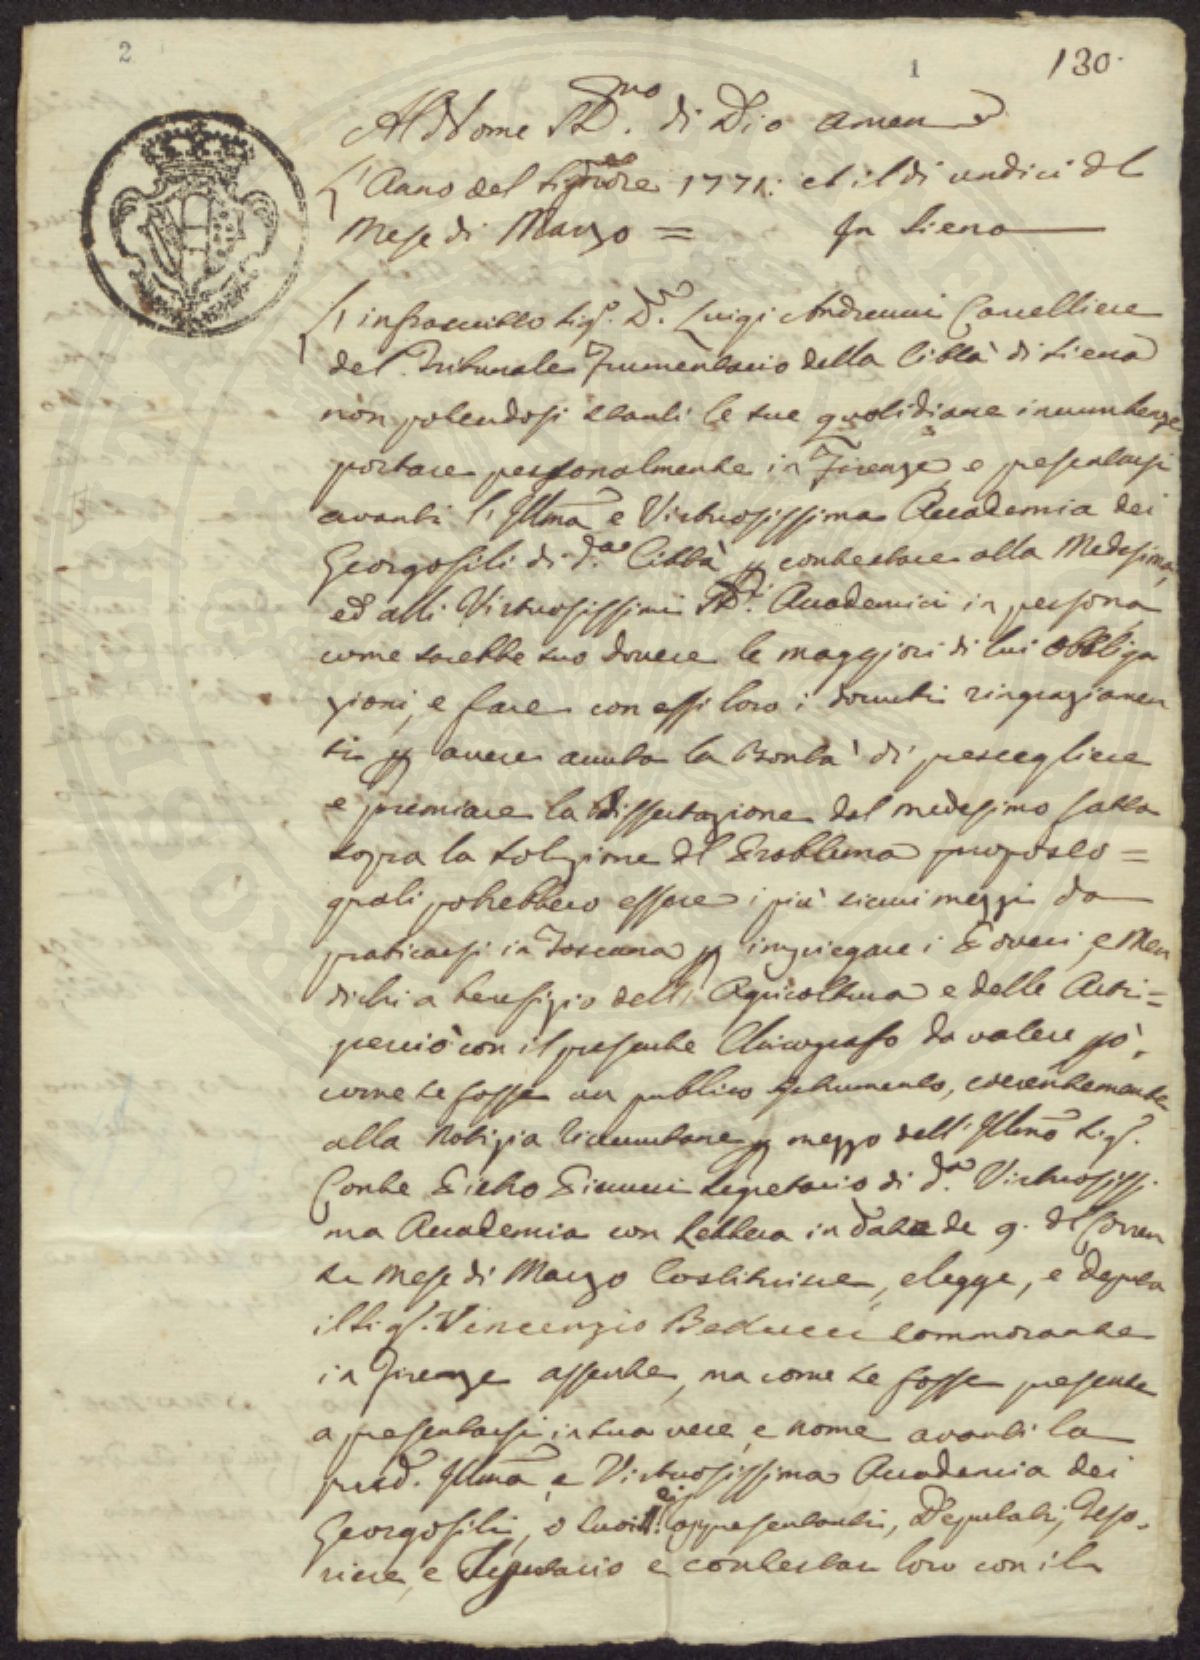 2
1
130.
Al Nome SS.mo di Dio amen
L'Anno del Signore 1771: et il dì undici del
Mese di Marzo = In Siena
L'infrascritto Sig.r D.re Luigi Andreucci Cancelliere
del Tribunale Frumentario della Città di Siena
non potendosi stanti le sue quotidiane incumbenze
portare personalmente in Firenze, e presentarsi
avanti l'Illma e Virtuosissima Accademia dei
Georgofili di d.a Città p contestare alla Medesima,
ed alli Virtuosissimi SS.ri Accademici in persona
come sarebbe suo dovere le maggiori di lui obbliga
zioni, e fare con essi loro i dovuti ringraziamen
ti p avere avuta la Bontà di prescegliere
e premiare la Dissertazione dal medesimo fatta
sopra la soluzione del Problema proposto =
quali potrebbero essere i più sicuri mezzi da
praticarsi in Toscana p impiegare i Poveri, e Men
dichi a benefizio dell'Agricoltura e delle Arti =
perciò con il presente Chirografo da valere
come se fosse un publico Istrumento, coerentemente
alla Notizia ricevutane p mezzo dell'Illmo Sig.r
Conte Pietro Segretario di d.a Virtuosissi
ma Accademia con Lettera in data de 9. del Corren
te Mese di Marzo Costituisce, elegge, e deputa
il Sig.r Vincenzio Beducci commorante
in Firenze assente, ma come se fosse presente
a presentarsi in sua vece, e nome avanti la
pred. Illma, e Virtuosissima Accademia dei
Georgofili, o suoi Rappresentanti, Deputati, Teso,
riere, e Segretario e contestar loro con il